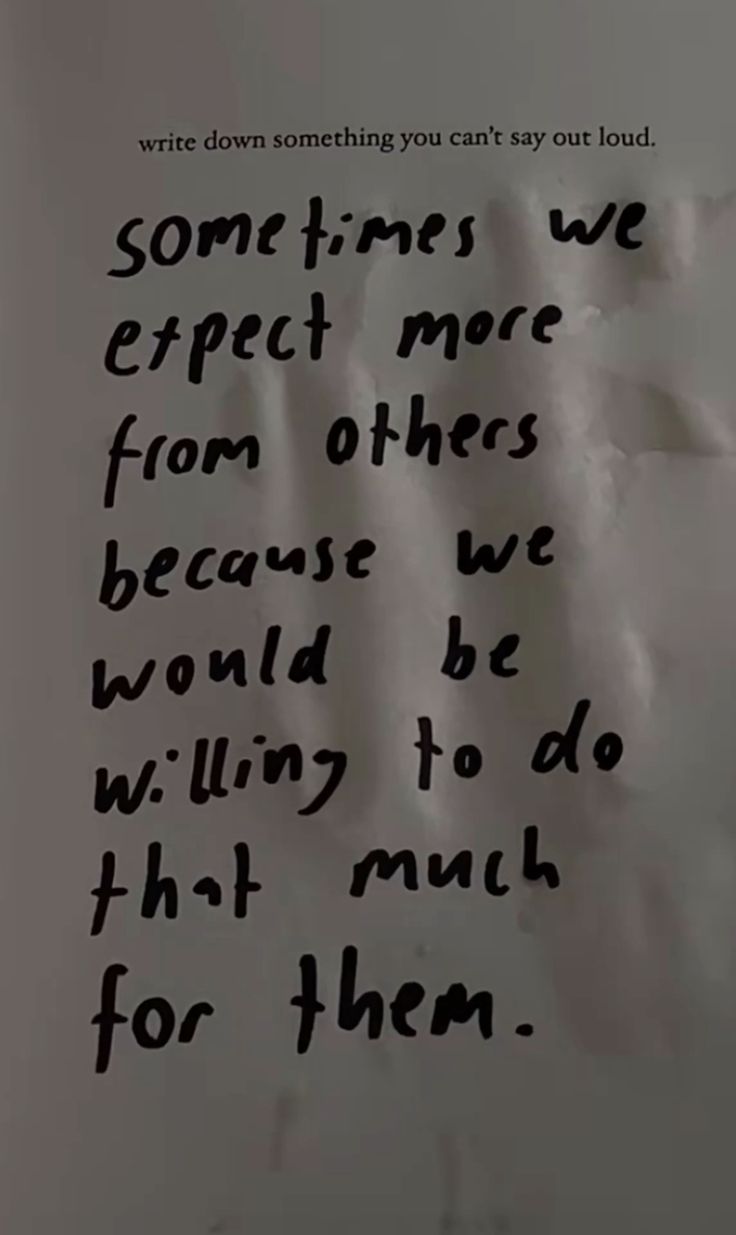 write down something you can't say out loud.
sometimes we
expect more
from others
because we
would be
willing to do
that much
for them.